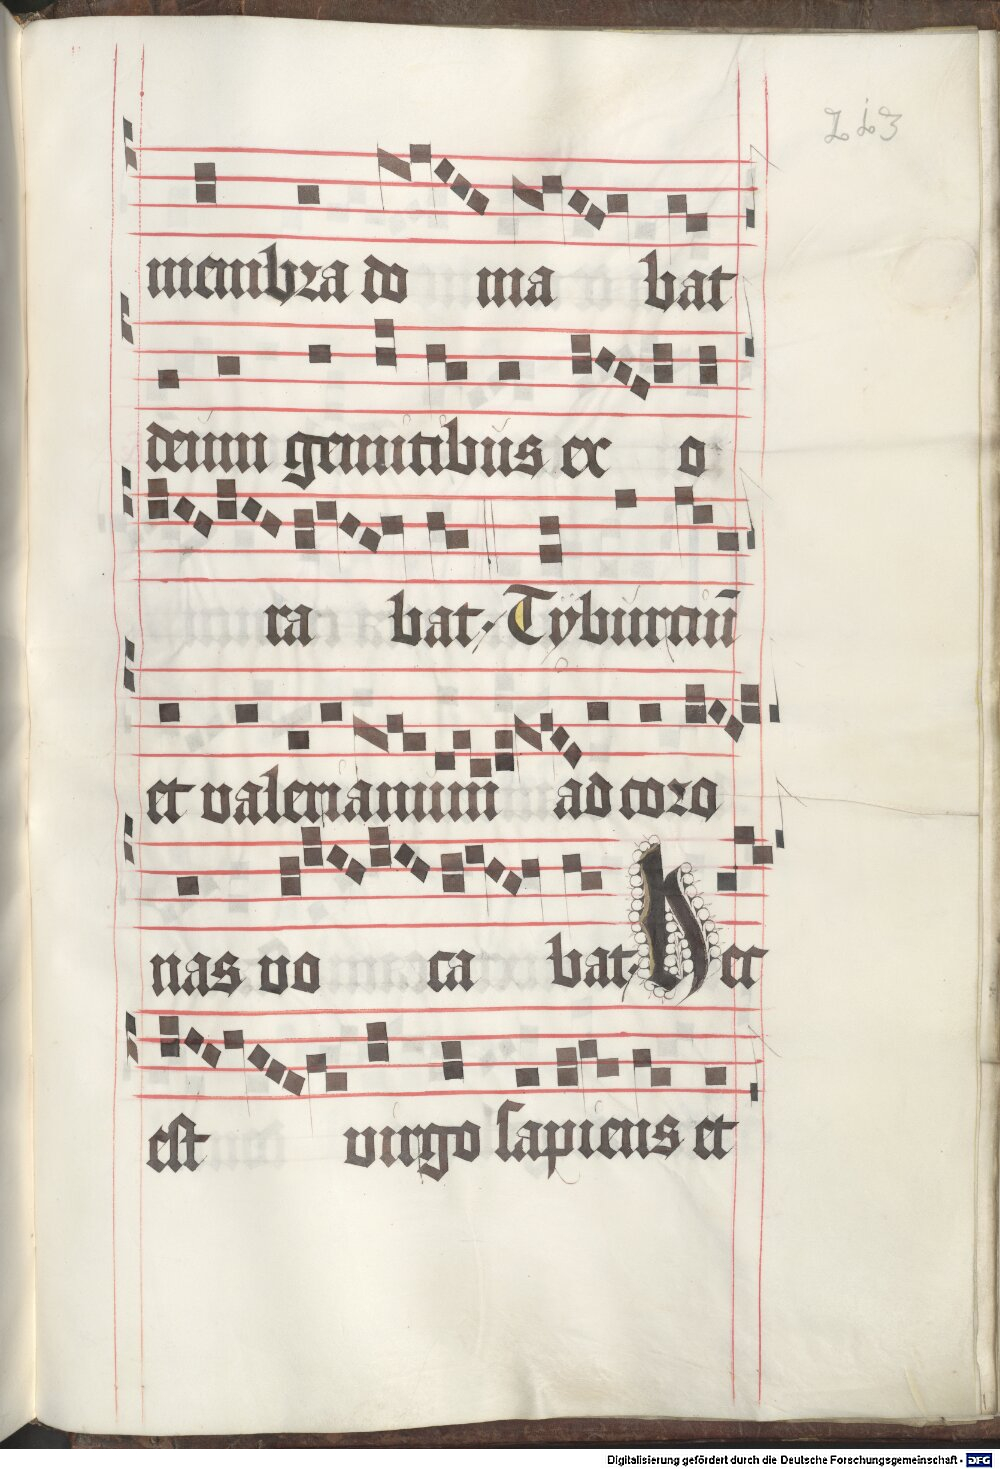 243
membra do ma bat
deum gemitibus ex o
ra bat. Tyburciū
et valerianum ad coro
nas vo ca bat. Hec
est virgo sapiens et
Digitalisierung gefördert durch die Deutsche Forschungsgemeinschaft - DFG